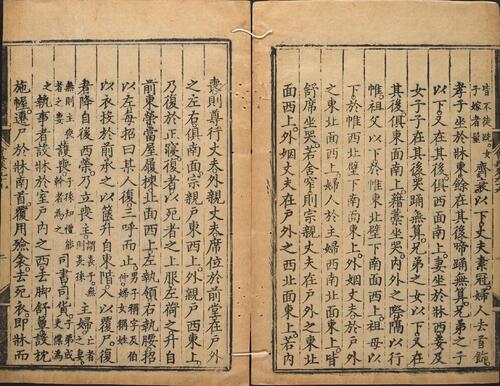 皆不徒跣女子嫁者髽齊衰以下丈夫素冠婦人去首飾
孝子坐於牀東餘在其後啼踊無算兄弟之子
以下又在其後俱西面南上妻坐於牀西妾及
女子子在其後哭踊無算兄弟之女以下又在
其後俱東面南上藉藁坐哭內外之際隔以行
帷祖父以下於帷東北壁下南面西上祖母以
下於帷西北壁下南面東上外姻丈夫於戶外
之東北面西上婦人於主婦西北南面東上皆
舒席坐哭若舍窄則宗親丈夫在戶外之東北
面西上外姻丈夫在戶外之西北面東上若內
喪則尊行丈夫外親丈夫席位於前堂在戶外
之左右俱南面宗親戶東西上外親戶西東上
乃復於正寢復者以死者之上服左荷之升自
前東榮當屋履棟北面西上左執領右執腰招
以左每招曰某人復三呼而止男子稱字及伯仲婦女稱姓
以衣投於前承之以篋升自東階入以覆尸復
者降自後西榮乃立喪主謂長子無則長孫主婦亡者之妻
無則主喪者之妻護喪能幹者為之司書司貨子弟或吏僕為
之執事者設牀於室戶內之西去脚舒簟設枕
施幄遷尸於牀南首覆用殮衾去死衣即牀而